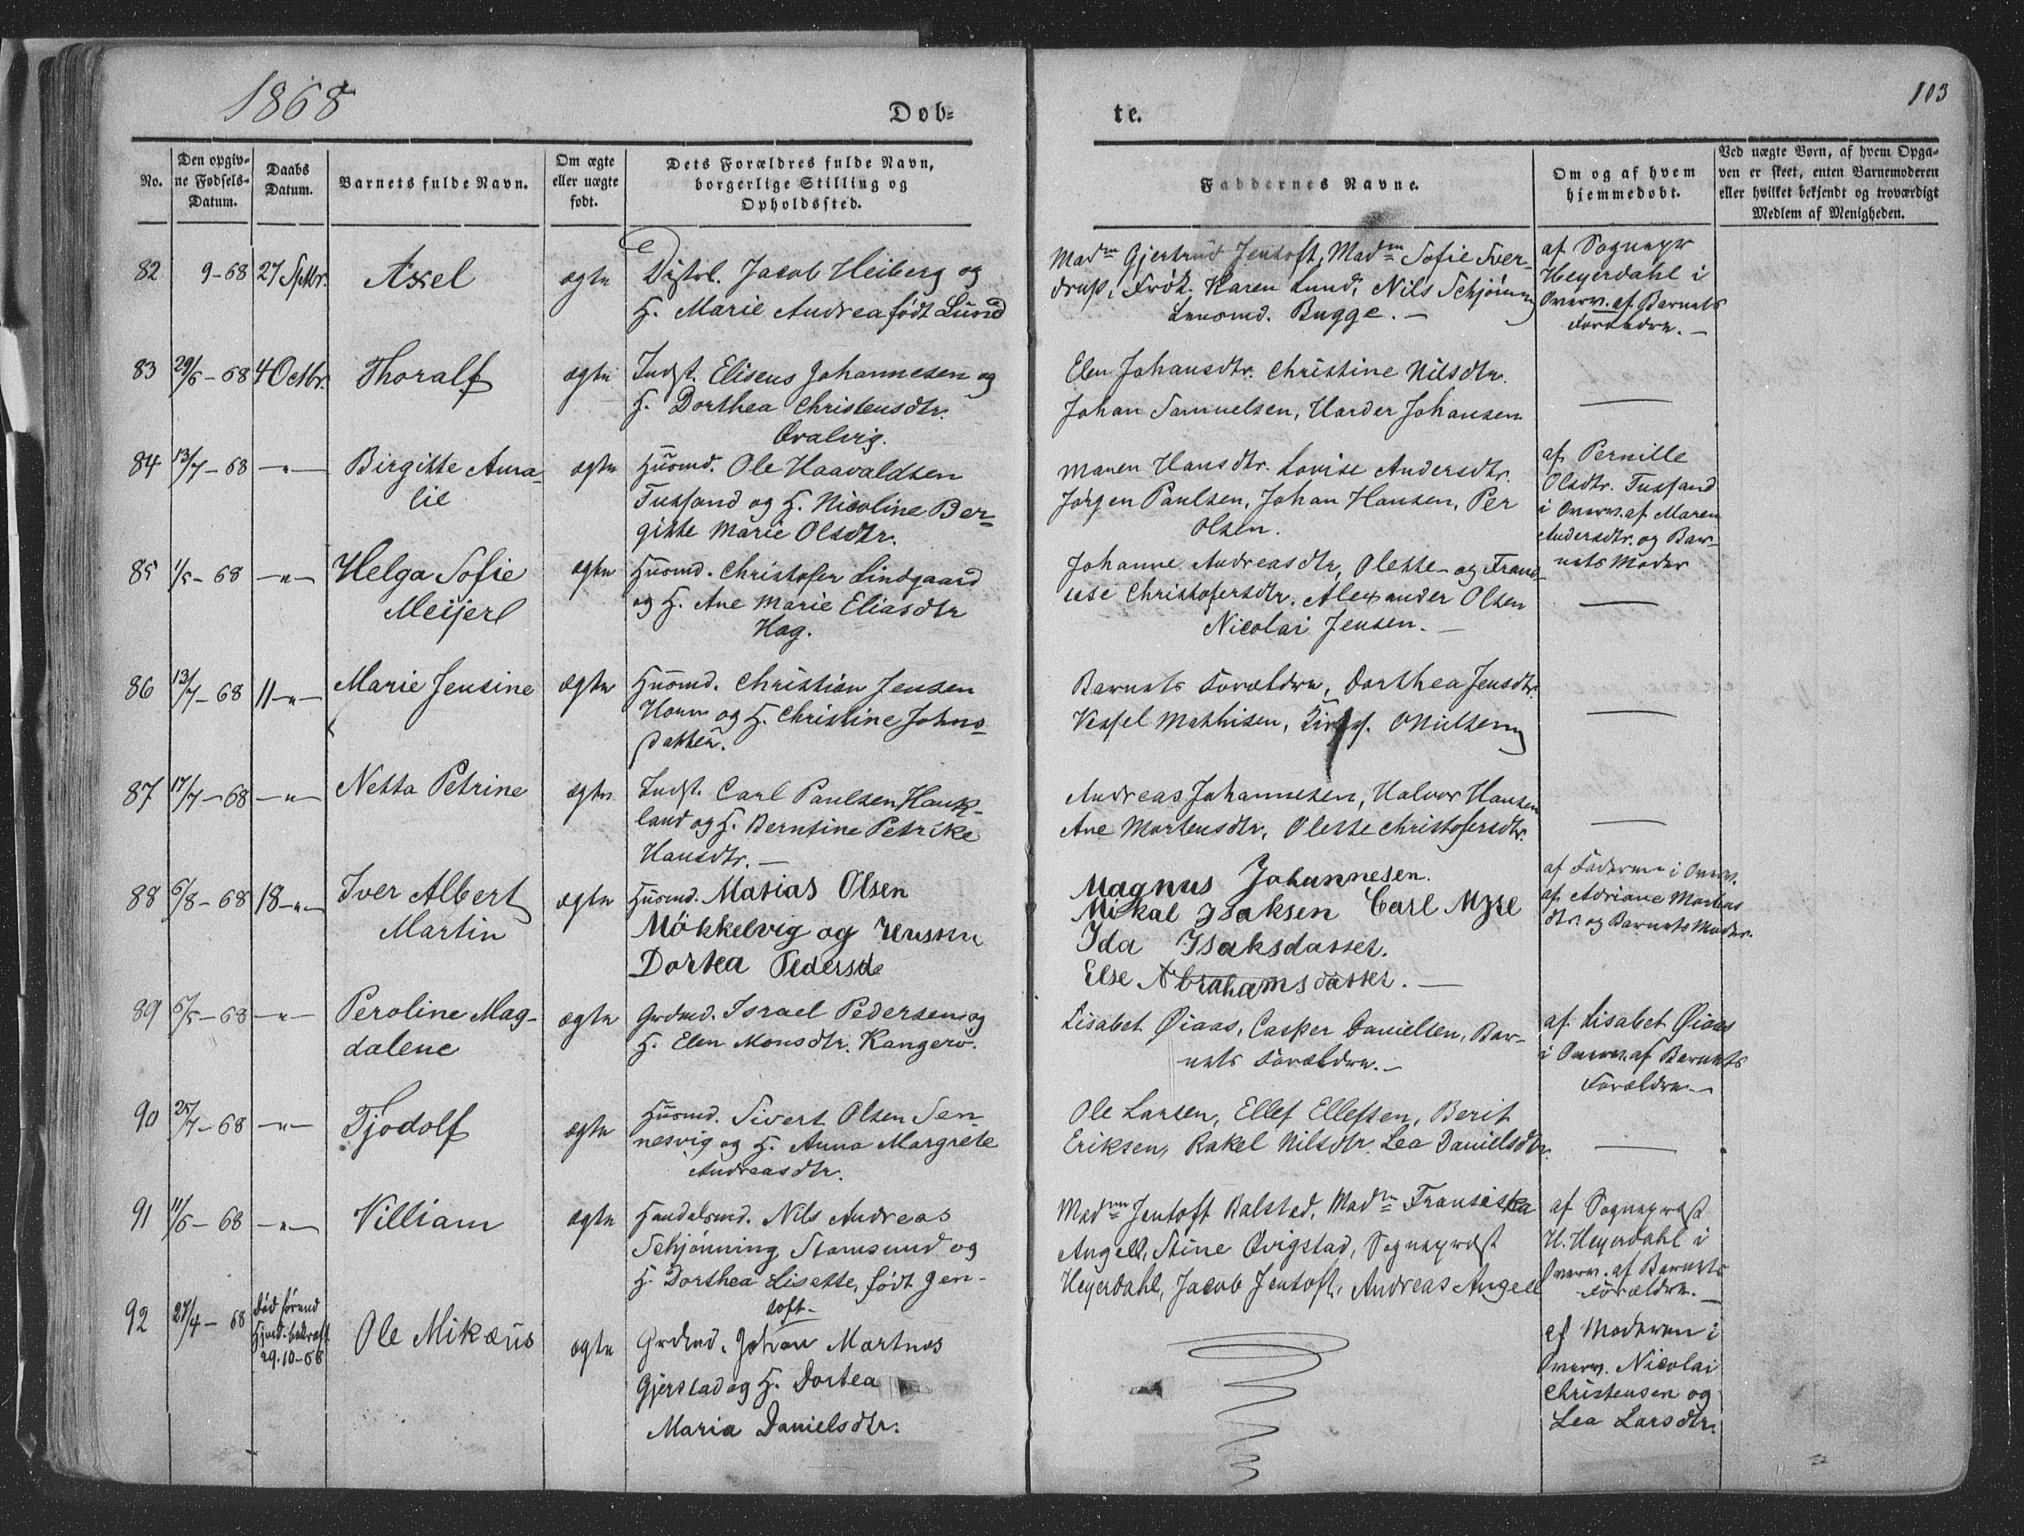 1868
Døb-
te.
103
No.
Den opgiv-
ne Fødsels-
Datum.
Daabs
Datum.
Barnets fulde Navn.
Om ægte
eller uægte
født.
Dets Forældres fulde Navn,
borgerlige Stilling og
Opholdssted.
Faddernes Navne.
Om og af hvem
hjemmedøbt.
Ved uægte Børn, af hvem Opga-
ven er skeet, enten Barnemoderen
eller hvilket bekjendt og troværdigt
Medlem af Menigheden.
82
9-68
27 Sptbr.
Axel
ægte
Distrl. Jacob Heiberg og
H. Marie Andrea født Lund
Madm Gjertrud Jentoft, Madm Sofie Sver-
drup, Frøk. Karen Lund, Nils Schjønning
Lensmd. Bugge. -
af Sognepr
Heyerdahl i
Overv. af Barnets
Forældre. -
83
29/6-68
4 Octbr.
Thoralf
ægte
Indst. Eliseus Johannesen og
H. Dorthea Christensdtr.
Øvalvig.
Elen Johansdtr. Christine Nilsdtr.
Johan Samuelsen, Harder Johansen
—
84
13/7-68
-"-
Birgitte Ama-
lie
ægte
Husmd. Ole Haavaldsen
Tussand og H. Nicoline Ber-
gitte Marie Olsdtr.
Maren Hansdtr. Lovise Andersdtr.
Jørgen Paulsen, Johan Hansen, Per
Olsen.
af Pernille
Olsdtr. Tussand
i Overv. af Maren
Andersdtr. og Bar-
nets Moder
85
1/5-68
-"-
Helga Sofie
Meijerl
ægte
Husmd. Christofer Lindgaard
og H. Ane Marie Eliasdtr
Hag.
Johanne Andreasdtr, Olette og Fran-
cise Christofersdtr. Alexander Olsen
Nicolai Jensen. -
—
86
13/7-68
11-"-
Marie Jensine
ægte
Husmd. Christian Jensen
Horn og H. Christine Johns-
datter.
Barnets Forældre, Dorthea Jensdtr.
Vessel Mathisen, Nilsen
—
87
17/7-68
-"-
Netta Petrine
ægte
Indst. Carl Paulsen Hauk-
land og H. Berntine Petrike
Hansdtr. -
Andreas Johannesen, Halvor Hansen
Ane Mortensdtr, Olette Christofersdtr.
—
88
6/8-68
18-"-
Iver Albert
Martin
ægte
Husmd. Matias Olsen
Møkkelvig og Hustru
Dortea Pedersd
Magnus Johannesen.
Mikal Isaksen Carl Myre
Ida Isaksdatter.
Else Abrahamsdatter. -
af Faderen i Overv.
af Adriane Mortens
dtr. og Barnets Moder.
89
6/5-68
-"-
Peroline Mag-
dalene
ægte
Grdmd. Israel Pedersen og
H. Elen Monsdtr. Kangerø.
Lisabet Øiaas, Casper Danielsen, Bar-
nets Forældre. -
af Lisabet Øiaas
i Overv. af Barnets
Forældre -
90
25/7-68
-"-
Tjodolf
ægte
Husmd. Sivert Olsen Sen-
nesvig og H. Anna Margrete
Andreasdtr.
Ole Larsen, Ellef Ellefsen, Berit
Eriksen, Rakel Nilsdtr. Lea Danielsdtr.
—
91
11/6-68
-"-
Villiam
ægte
Handelsmd. Nils Andreas
Schjønning Stamsund og
H. Dorthea Lisette, født Jen-
toft-
Madm Jentoft Balstad, Madm Fransiska
Angell, Stine Qvigstad, Sognepræst
Heyerdahl, Jacob Jentoft, Andreas Angell
af Sognepræst
H. Heyerdahl i
Overv. af Barnets
Forældre. -
92
27/4-68
Død førend
Hjmd. bekræft
29.10-68
Ole Mikæus
ægte
Grdmd. Johan Martnes
Gjerstad og H. Dortea
Maria Danielsdtr.
af Moderen i
Overv. Nicolai
Christensen og
Lea Larsdtr.